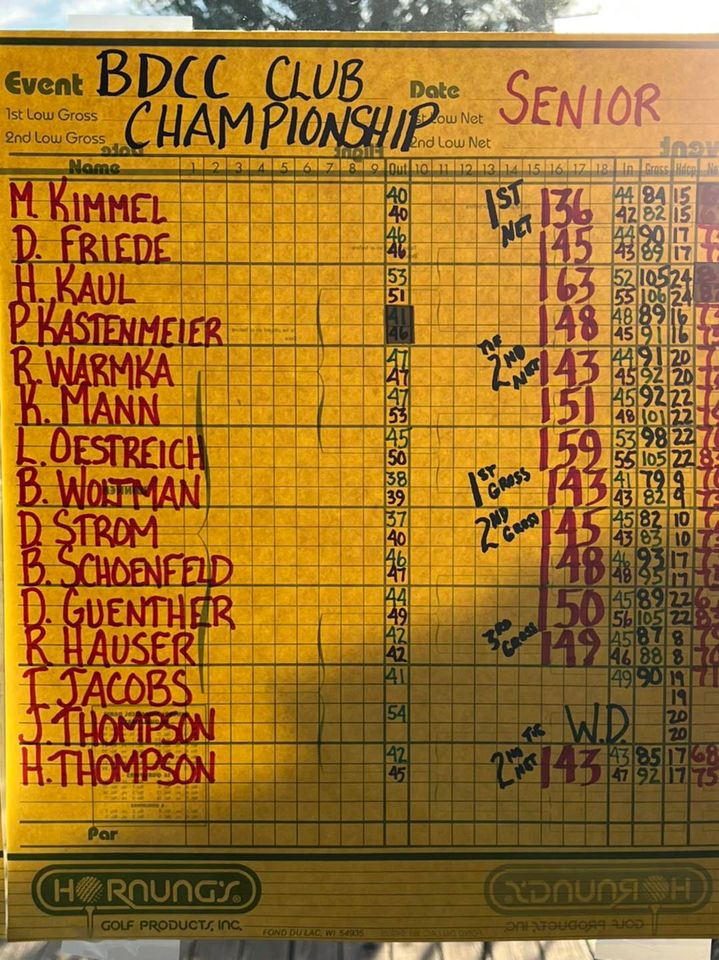 Event BDCC CLUB Date SENIOR
1st Low Gross CHAMPIONSHIP 1st Low Net
2nd Low Gross 2nd Low Net
Name 1 2 3 4 5 6 7 8 9 Out 10 11 12 13 14 15 16 17 18 In Gross Hdcp
M. KIMMEL 40 1ST NET 136 44 84 15
40 42 82 15
D. FRIEDE 46 145 44 90 17
46 43 89 17
H. KAUL 53 163 52 105 24
51 55 106 24
P. KASTENMEIER 41 148 48 89 16
46 45 91 16
R. WARMKA 47 TIE 2ND NET 143 44 91 20
47 45 92 20
K. MANN 47 151 45 92 22
53 48 101 22
L. OESTREICH 45 159 53 98 22
50 55 105 22
B. WOLTMAN 38 1ST GROSS 143 41 79 9
39 43 82 9
D. STROM 37 2ND GROSS 145 45 82 10
40 43 83 10
B. SCHOENFELD 46 148 46 93 17
47 48 95 17
D. GUENTHER 44 150 45 89 22
49 56 105 22
R HAUSER 42 3RD GROSS 149 45 87 8
42 46 88 8
T JACOBS 41 49 90 19 71
19
J. THOMPSON 54 W.D 20
20
H. THOMPSON 42 2ND TIE NET 143 43 85 17 68
45 47 92 17 75
Par
HORNUNG'S
GOLF PRODUCTS, INC.
FOND DU LAC, WI 54935